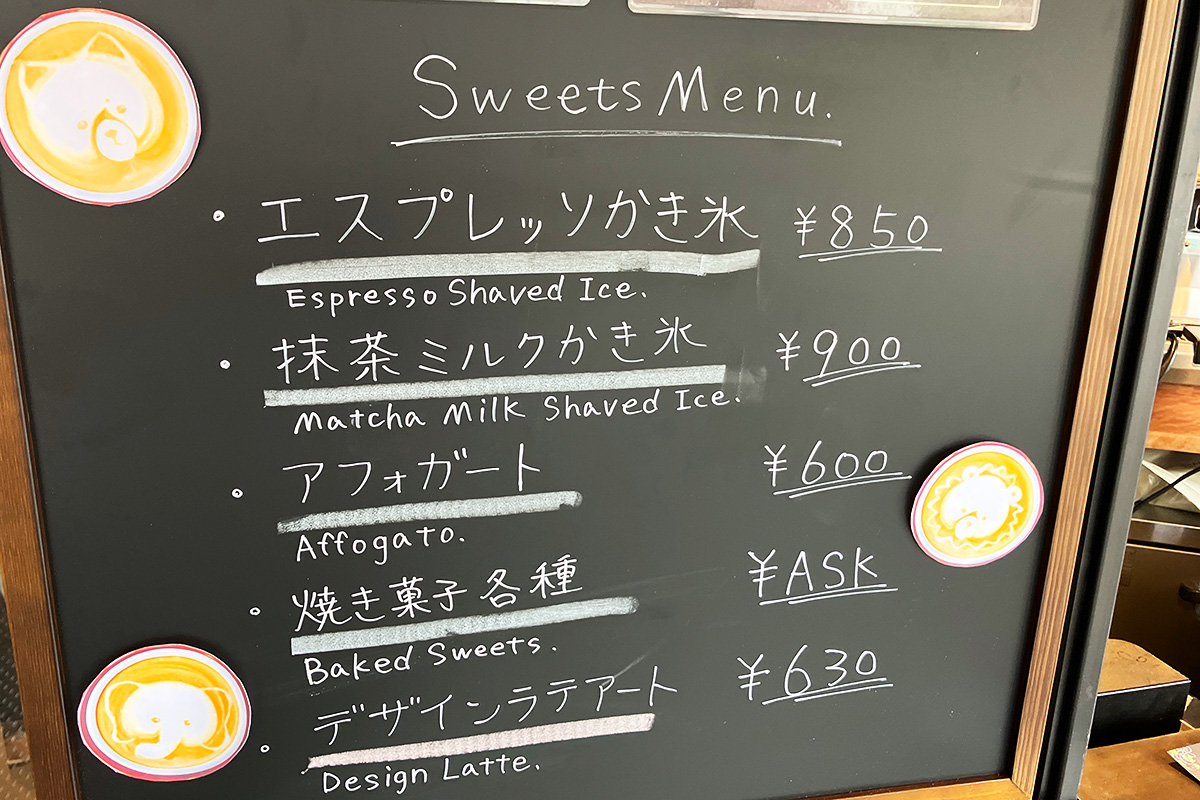 Sweets Menu.
・エスプレッソかき氷 ¥850
Espresso Shaved Ice.
・抹茶ミルクかき氷 ¥900
Matcha Milk Shaved Ice.
・アフォガート ¥600
Affogato.
・焼き菓子各種 ¥ASK
Baked Sweets.
・デザインラテアート ¥630
Design Latte.